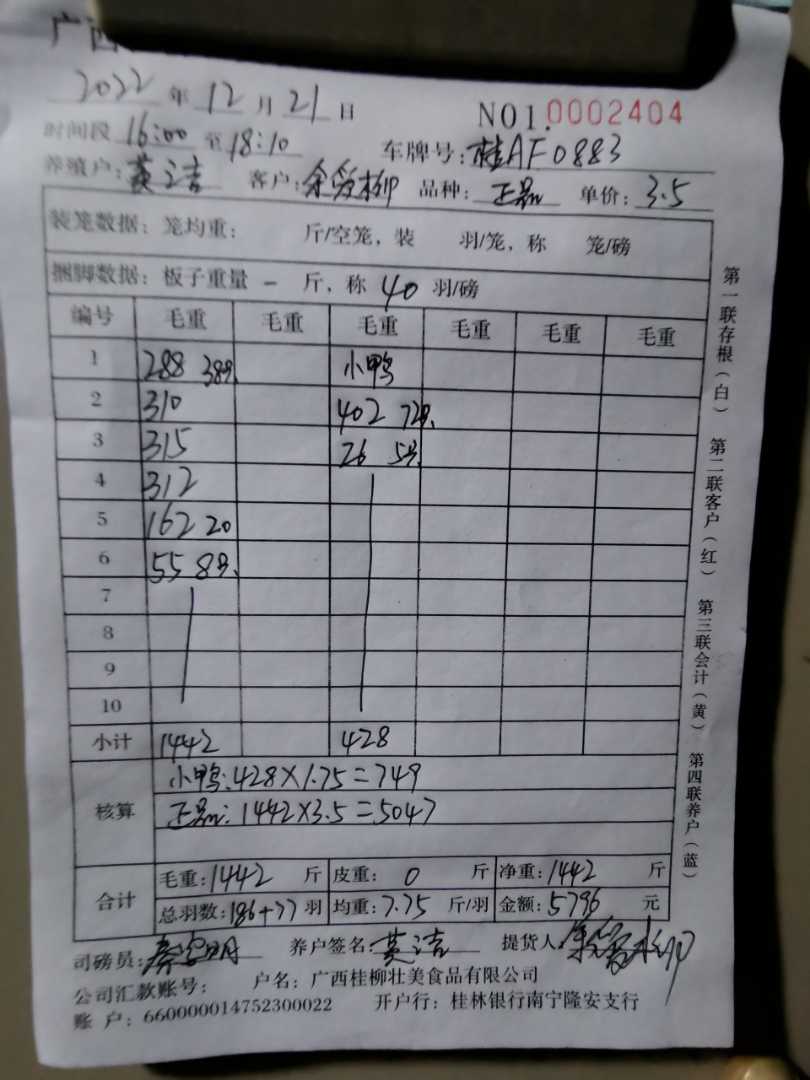 广西
2022年12月21日 NO1.0002404
时间段16:00至18:10 车牌号:桂AF0883
养殖户: 黄洁 客户: 余爱柳 品种: 正品 单价: 3.5
装笼数据: 笼均重: 斤/空笼, 装 羽/笼, 称 笼/磅
捆脚数据: 板子重量 - 斤, 称 40 羽/磅
编号 毛重 毛重 毛重 毛重 毛重 毛重
1 288 38羽. 小鸭
2 310 402 72羽.
3 315 26 5羽.
4 312
5 162 20
6 55 8羽.
7
8
9
10
小计 1442 428
核算 小鸭:428×1.75=749
正品:1442×3.5=5047
合计 毛重:1442 斤 皮重: 0 斤 净重:1442 斤
总羽数:186+77羽 均重:7.75 斤/羽 金额:5796 元
司磅员: 养户签名: 黄洁 提货人 余爱柳
公司汇款账号: 户名: 广西桂柳壮美食品有限公司
账 户: 660000014752300022 开户行: 桂林银行南宁隆安支行
第一联存根(白) 第二联客户(红) 第三联会计(黄) 第四联养户(蓝)